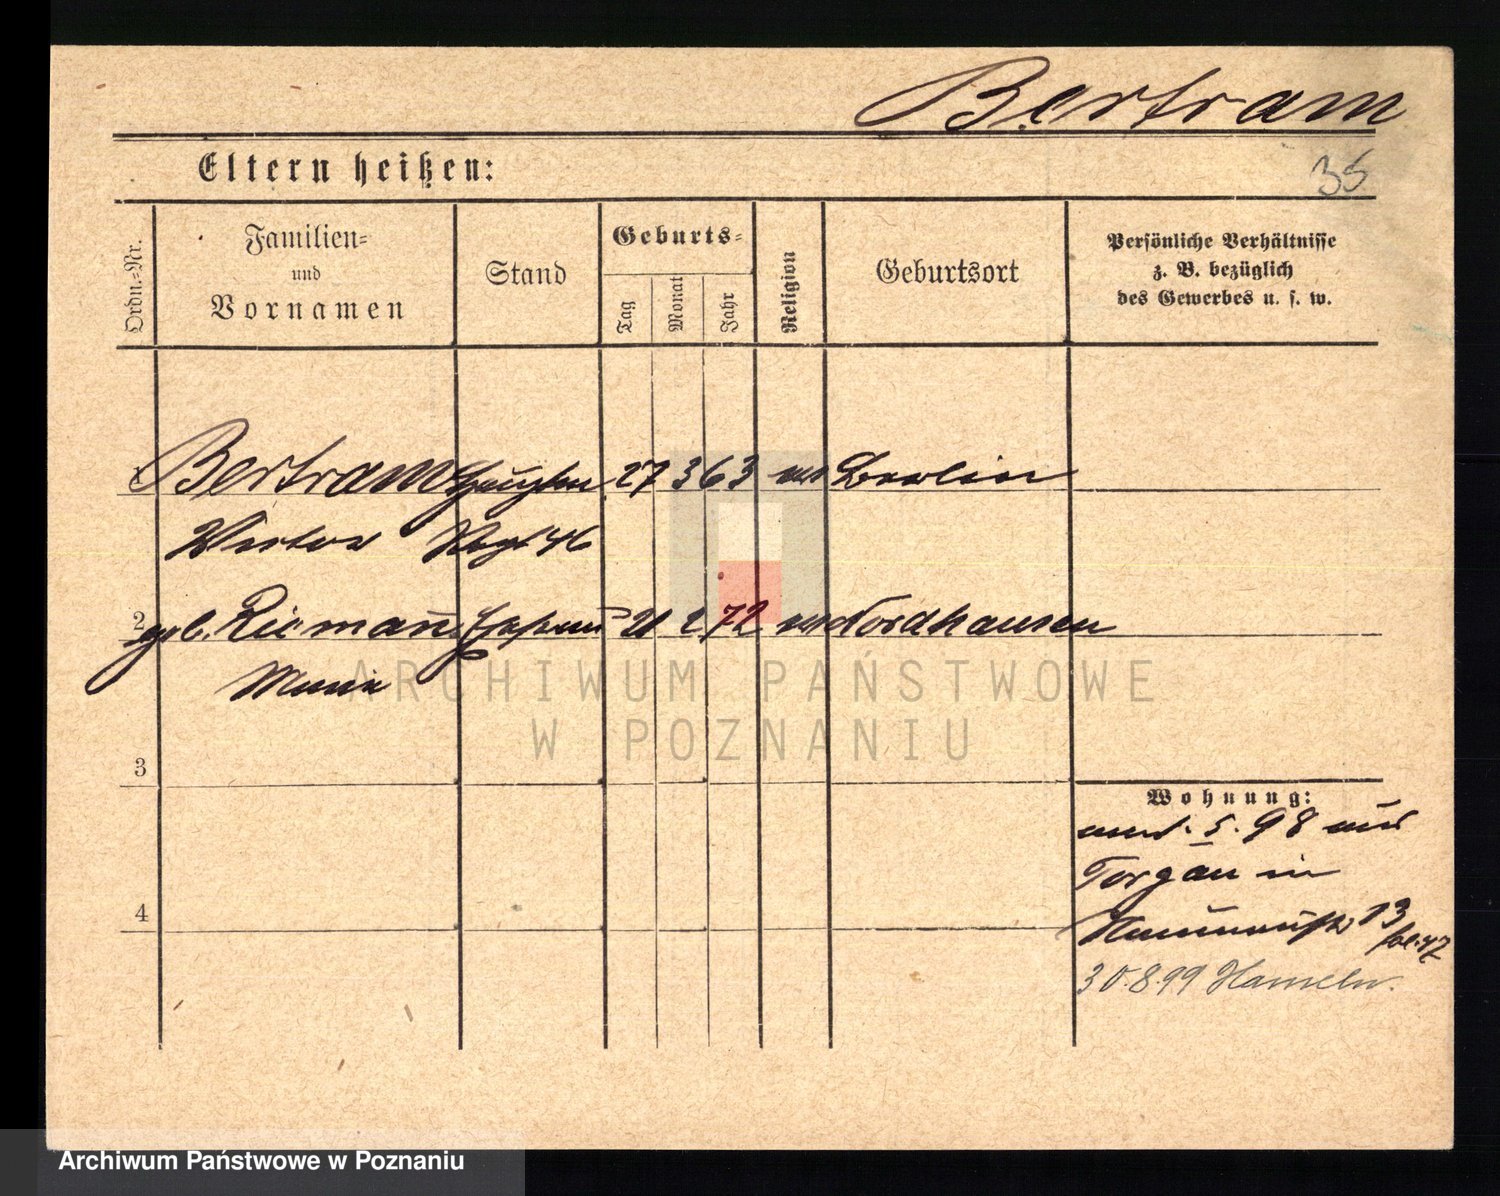 Bertram
Eltern heißen:
35
Ordn.-Nr.
Familien- und Vornamen
Stand
Geburts-
Tag
Monat
Jahr
Religion
Geburtsort
Persönliche Verhältnisse
z. B. bezüglich
des Gewerbes u. s. w.
1 Bertram Hauptm 27 3 63 Berlin
Viktor Regt 46
2 geb. Riemann Ehefrau 21 2 72 Nordhausen
Marie
3
4
Wohnung:
5. 98 aus
Torgau in
13
30.8.99 Hameln.
ARCHIWUM PAŃSTWOWE
W POZNANIU
Archiwum Państwowe w Poznaniu